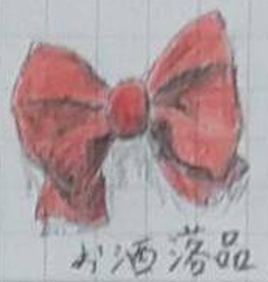 お洒落品